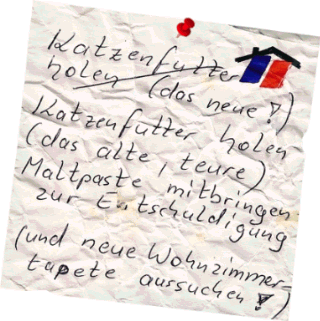 Katzenfutter
holen (das neue!)
Katzenfutter holen
(das alte, teure)
Maltpaste mitbringen
zur Entschuldigung
(und neue Wohnzimmer-
tapete aussuchen!)